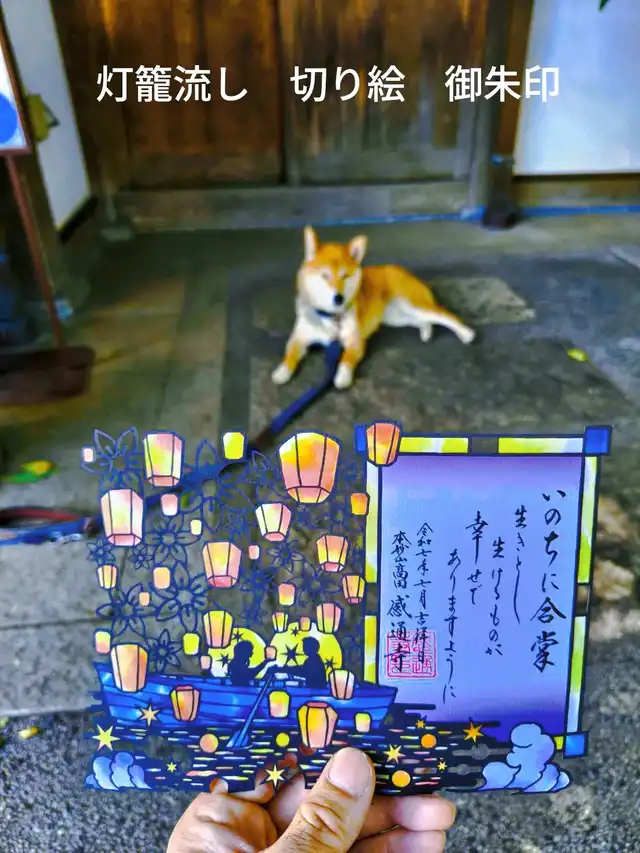 灯籠流し 切り絵 御朱印
いのちに合掌
生きとし
生けるものが
幸せで
ありますように
令和七年七月吉祥日
本妙山高田
感通寺